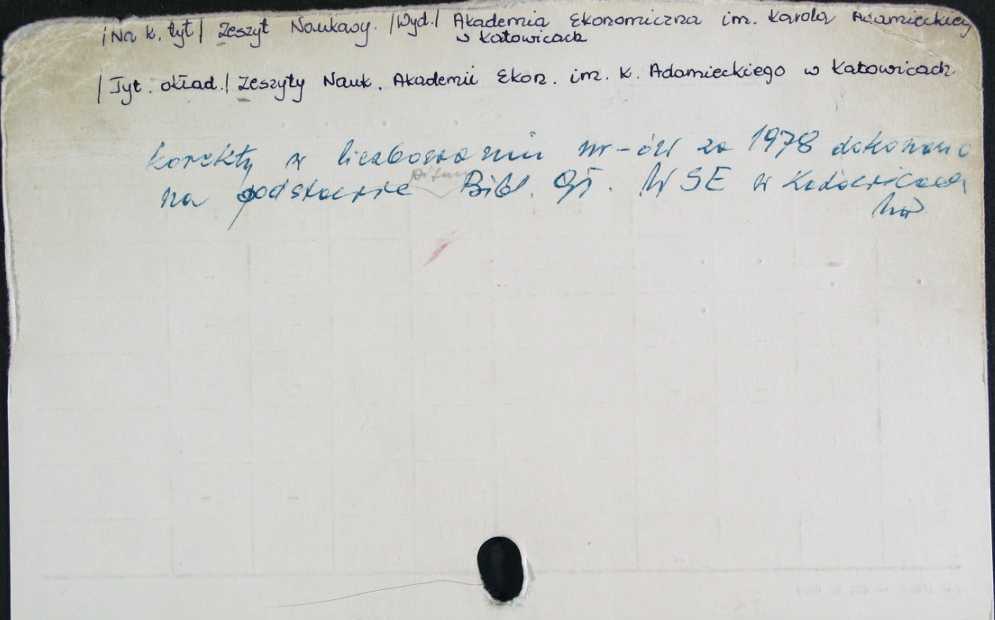 /Na k. tyt/ Zeszyt Naukowy. /Wyd./ Akademia Ekonomiczna im. Karola Adamieckiego
w Katowicach
/Tyt. okład./ Zeszyty Nauk. Akademii Ekon. im. K. Adamieckiego w Katowicach
Korekty w liczbowaniu nr-ów za 1978 dokonano
na podstawie Bibl. Gł. WSE w Katowicach